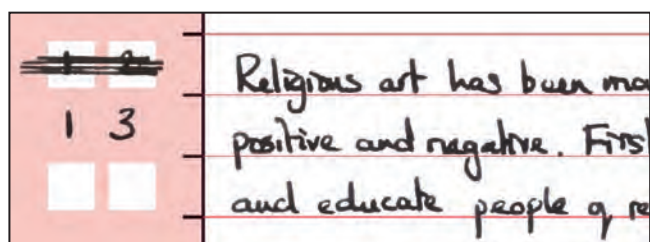 1 2
Religious art has been ma
1 3
positive and negative. First
and educate people of re